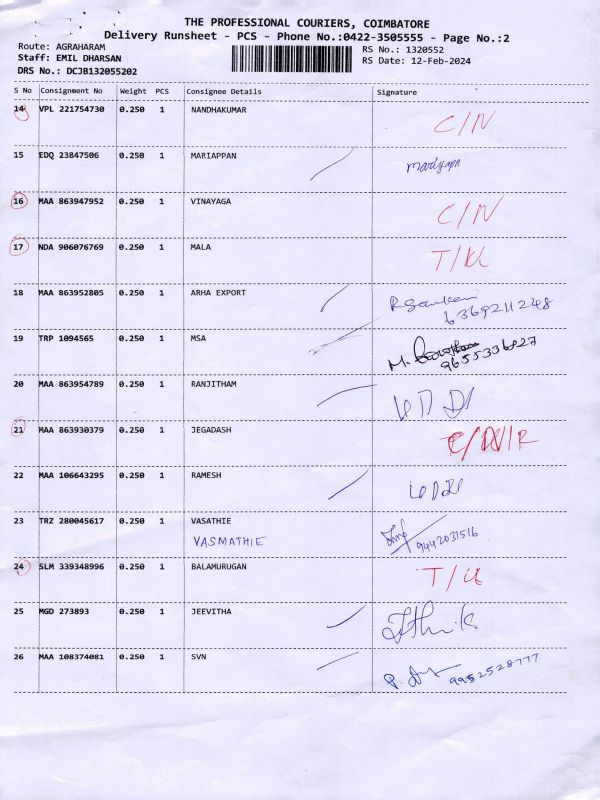 THE PROFESSIONAL COURIERS, COIMBATORE
Delivery Runsheet - PCS - Phone No.:0422-3505555 - Page No.:2
Route: AGRAHARAM RS No.: 1320552
Staff: EMIL DHARSAN RS Date.: 12-Feb-2024
DRS No.: DCJB132055202
S No Consignment No Weight PCS Consignee Details Signature
14 VPL 221754730 0.250 1 NANDHAKUMAR C/N
15 EDQ 23847506 0.250 1 MARIAPPAN
16 MAA 863947952 0.250 1 VINAYAGA C/N
17 NDA 906076769 0.250 1 MALA
18 MAA 863952805 0.250 1 ARHA EXPORT
6369211248
19 TRP 1094565 0.250 1 MSA M.
20 MAA 863954789 0.250 1 RANJITHAM
21 MAA 863930379 0.250 1 JEGADASH
22 MAA 106643295 0.250 1 RAMESH
23 TRZ 280045617 0.250 1 VASATHIE
VASMATHIE 9442031516
24 SLM 339348996 0.250 1 BALAMURUGAN
25 MGD 273893 0.250 1 JEEVITHA
26 MAA 108374081 0.250 1 SVN
P. 9952528777